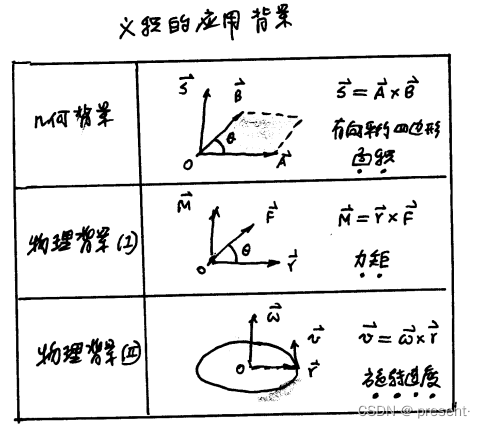 叉积的应用背景
几何背景
S⃗ B⃗ θ O A⃗
S⃗ = A⃗ × B⃗
有向平行四边形
面积
物理背景(I)
M⃗ F⃗ θ O r⃗
M⃗ = r⃗ × F⃗
力矩
物理背景(II)
ω⃗ v⃗ O r⃗
v⃗ = ω⃗ × r⃗
旋转速度
CSDN @present·